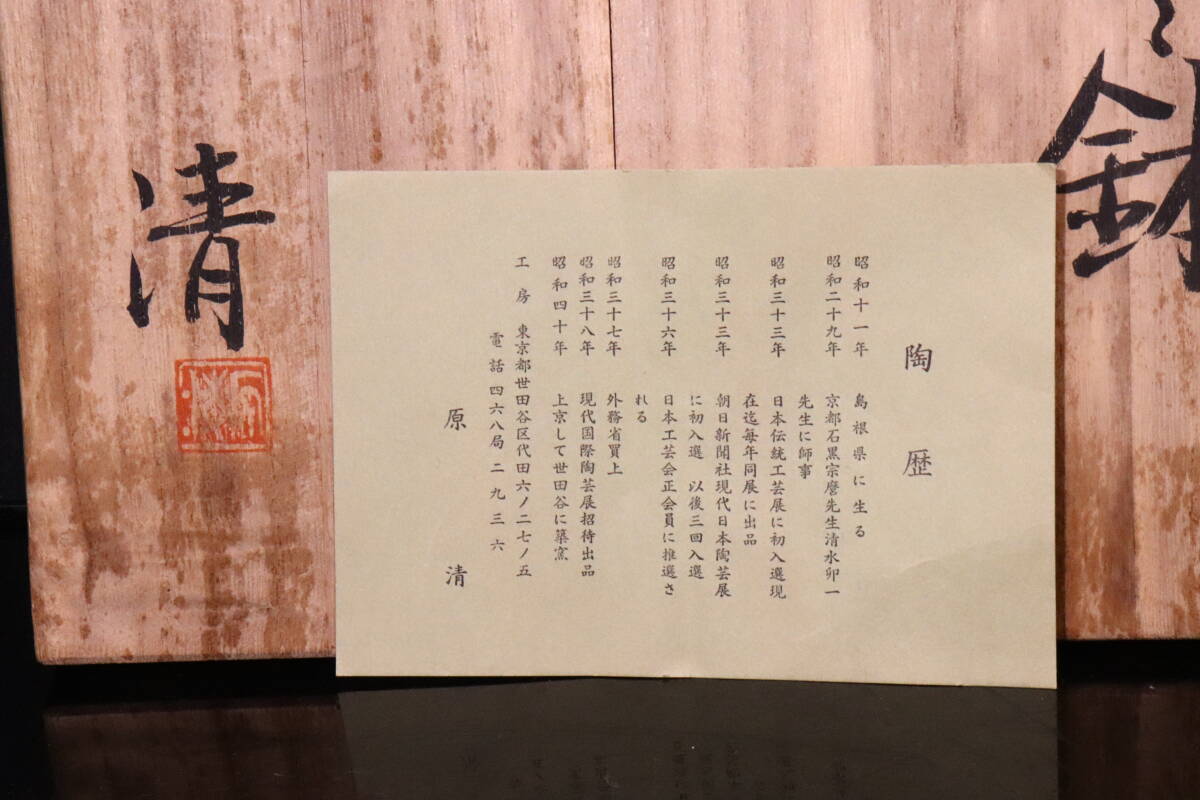 鉢
陶歴
昭和十一年 島根県に生る
昭和二十九年 京都石黒宗麿先生清水卯一
先生に師事
昭和三十三年 日本伝統工芸展に初入選現
在迄毎年同展に出品
昭和三十三年 朝日新聞社現代日本陶芸展
に初入選 以後三回入選
昭和三十六年 日本工芸会正会員に推選さ
れる
昭和三十七年 外務省買上
昭和三十八年 現代国際陶芸展招待出品
昭和四十年 上京して世田谷に築窯
工房 東京都世田谷区代田六ノ二七ノ五
電話四六八局二九三六
原清
清